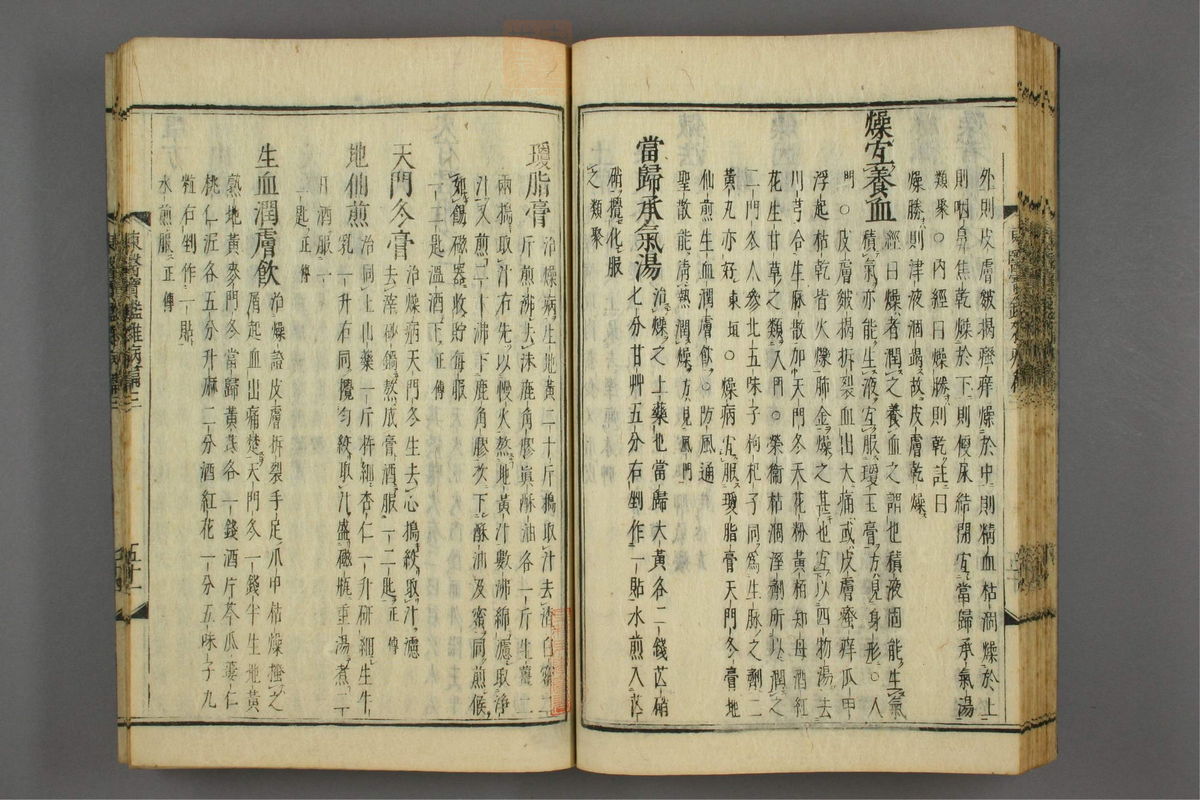 外則皮膚皴揭瘙痒燥於中則精血枯涸燥於上
則咽鼻焦乾燥於下則便尿結閉宜當歸承氣湯
類聚○內經曰燥勝則乾註曰
燥勝則津液涸竭故皮膚乾燥
燥宜養血
經曰燥者潤之養血之謂也積液固能生氣
積氣亦能生液宜服瓊玉膏方見身形○人
門○皮膚皴揭拆裂血出大痛或皮膚瘙痒爪甲
浮起枯乾皆火爍肺金燥之甚也宜以四物湯去
川芎合生脉散加天門冬天花粉黃柏知母酒紅
花生甘草之類入門○榮衛枯涸溼劑所以潤之
二門冬人參北五味子枸杞子同爲生脉之劑二
黃丸亦好東垣○燥病宜服瓊脂膏天門冬膏地
仙煎生血潤膚飮○防風通
聖散能淸熱潤燥方見風門
當歸承氣湯
治燥之上藥也當歸大黃各二錢芒硝
七分甘艸五分右剉作一貼水煎入芒
硝攪化服
之類聚
瓊脂膏
治燥病生地黃二十斤搗取汁去滓白蜜二
斤煎沸去沫鹿角膠眞酥油各一斤生薑二
兩搗取汁右先以慢火熬地黃汁數沸綿濾取淨
汁又煎二十沸下鹿角膠次下酥油及蜜同煎候
如餳磁器收貯每服
一二匙溫酒下正傳
天門冬膏
治燥病天門冬生去心搗絞取汁濾
去滓砂鍋熬成膏酒服一二匙正傳
地仙煎
治同上山藥一斤杵細杏仁一升硏細生牛
乳一升右同攪勻絞取汁盛磁瓶重湯煮二
日酒服一
二匙正傳
生血潤膚飮
治燥證皮膚拆裂手足爪甲枯燥搔之
屑起血出痛楚天門冬一錢半生地黃
熟地黃麥門冬當歸黃芪各一錢酒片芩瓜蔞仁
桃仁泥各五分升麻二分酒紅花一分五味子九
粒右剉作一貼
水煎服正傳
東醫寶鑑雜病編三